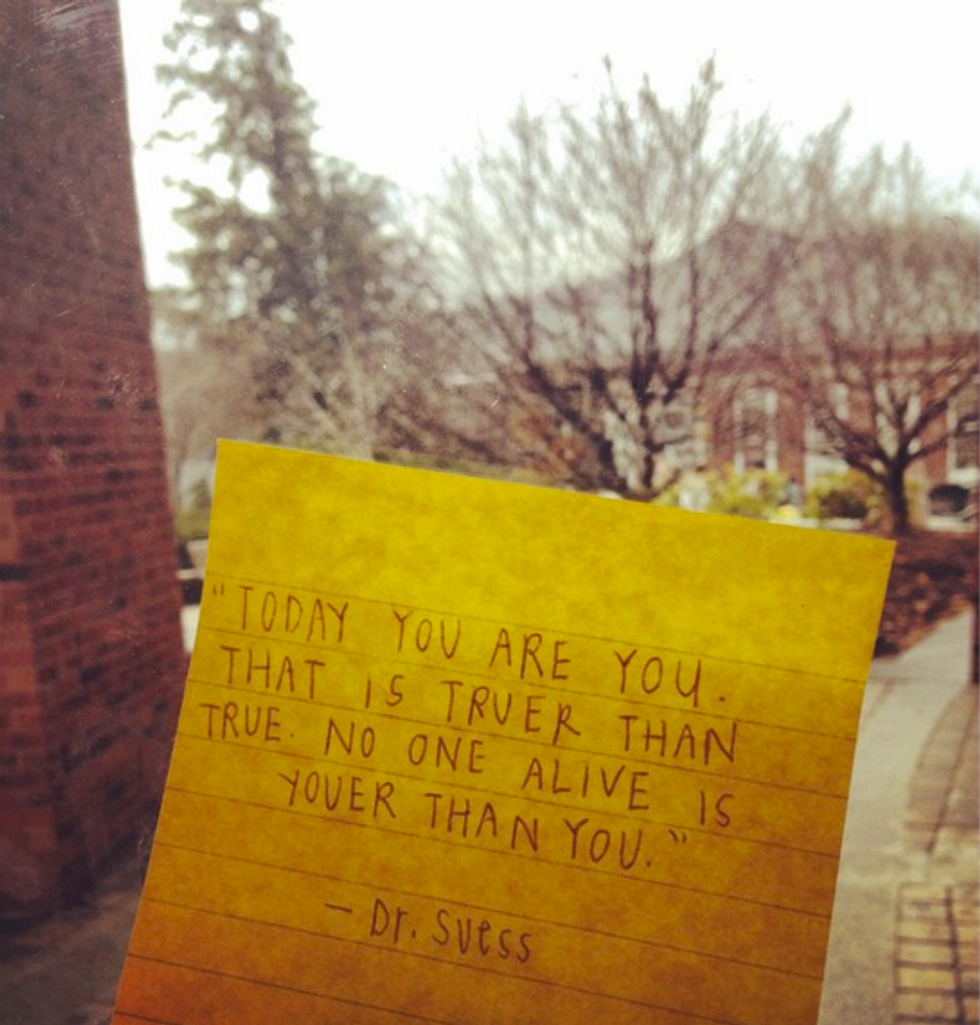 "TODAY YOU ARE YOU.
THAT IS TRUER THAN
TRUE. NO ONE ALIVE IS
YOUER THAN YOU."
- Dr. Suess